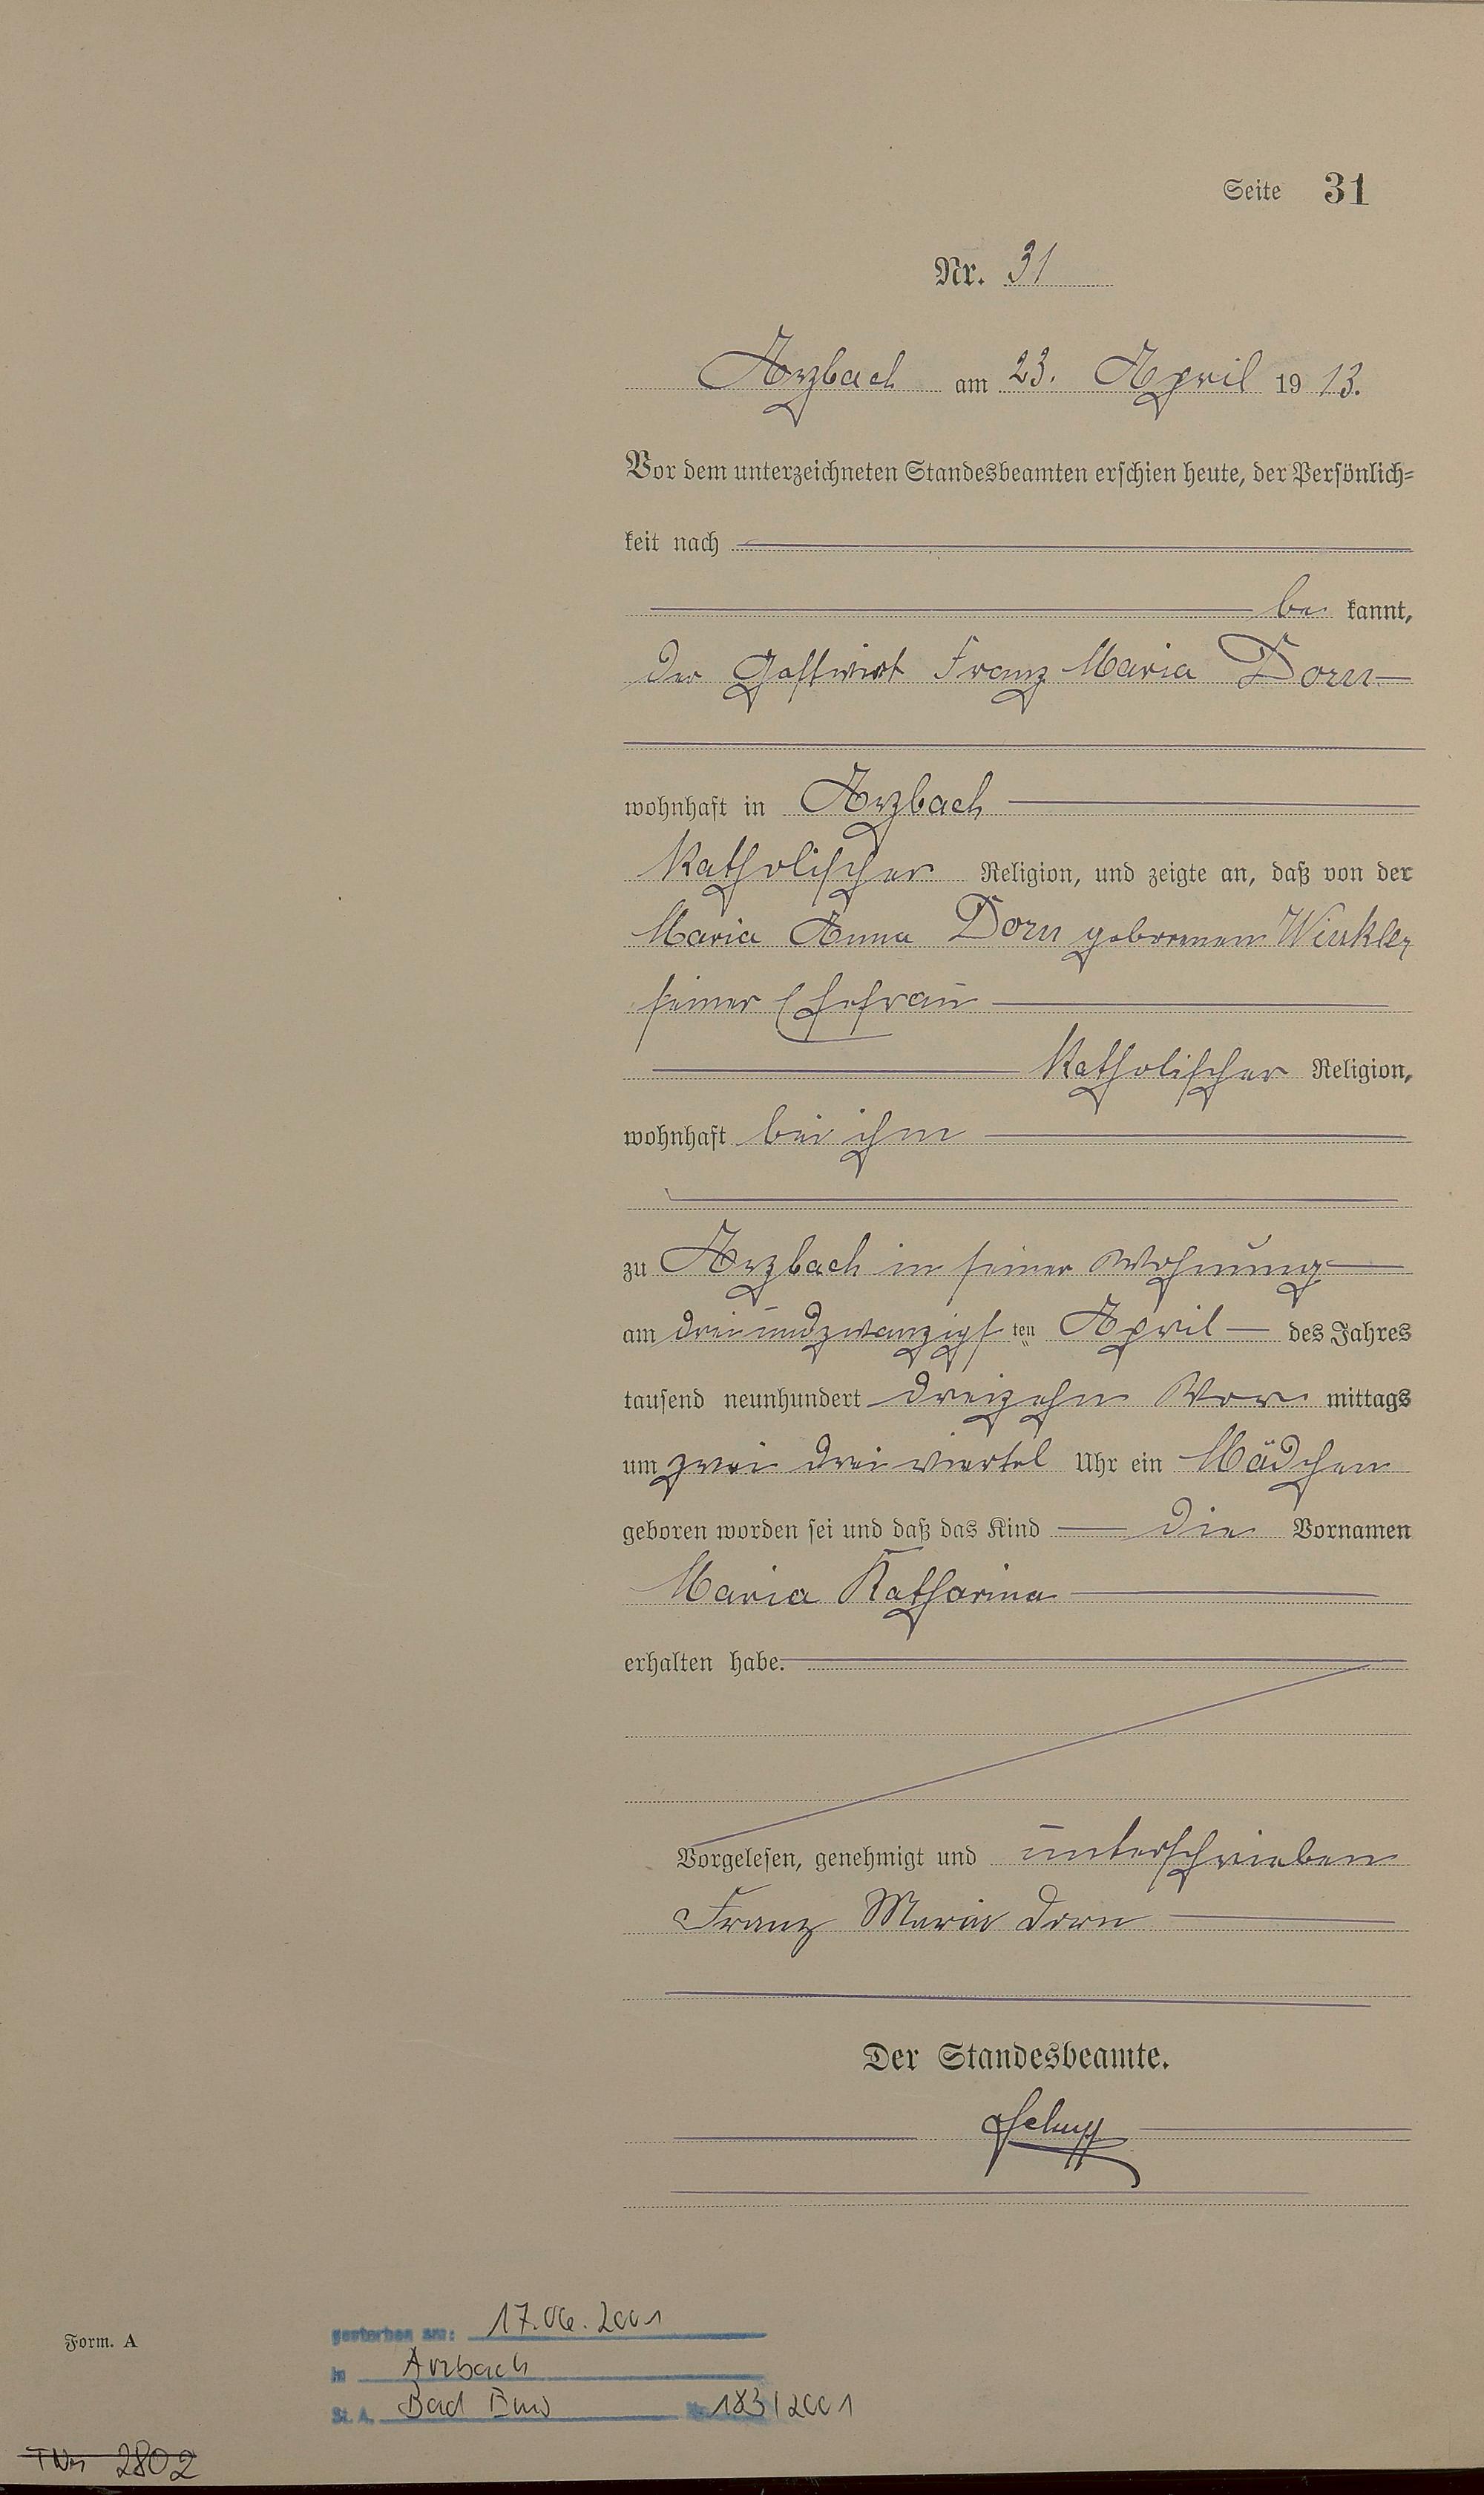 Seite 31
Nr. 31
Arzbach am 23. April 19 13.
Vor dem unterzeichneten Standesbeamten erschien heute, der Persönlich-
keit nach
be kannt,
der Gastwirt Franz Maria Dorn
wohnhaft in Arzbach
katholischer Religion, und zeigte an, daß von der
Maria Anna Dorn geborenen Winkler,
seiner Ehefrau
katholischer Religion,
wohnhaft bei ihm
zu Arzbach in seiner Wohnung
am dreiundzwanzigsten April des Jahres
tausend neunhundert dreizehn Vor mittags
um zwei drei viertel Uhr ein Mädchen
geboren worden sei und daß das Kind die Vornamen
Maria Katharina
erhalten habe.
Vorgelesen, genehmigt und unterschrieben
Franz Maria Dorn
Der Standesbeamte.
Form. A
gestorben am: 17.06.2001
in Arzbach
St. A. Bad Ems Nr. 183/2001
TNr 2802